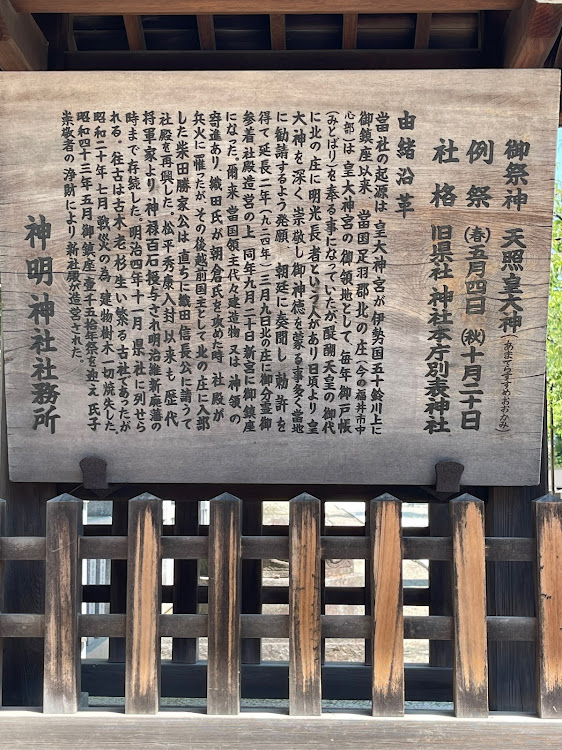 御祭神　天照皇大神（あまてらすすめおおみかみ）
例　祭　（春）五月四日　（秋）十月二十日
社　格　旧県社　神社本庁別表神社
由緒沿革
当社の起源は　皇大神宮が伊勢国五十鈴川上に
御鎮座以来　当国足羽郡北の庄（今の福井市中
心部）は　皇大神宮の御領地として、毎年御戸帳
（みとばり）を奉る事になっていたが醍醐天皇の御代
に北の庄に明光長者という人があり日頃より　皇
大神を　深く　崇敬し御神徳を蒙る事多く當地
に勧請するよう発願　朝廷に奏聞し　勅許を
得て　延長二年（九二四年）三月九日北の庄に御分霊御
参着社殿造営の上　同年九月二十日新宮に御鎮座
になった。爾来　當国領主代々建造物　又は　神領の
寄進あり、織田氏が　朝倉氏を攻めた時、社殿が
兵火に罹ったが、その後越前国主として　北の庄に入部
した柴田勝家公は　直ちに織田　信長公に請うて
社殿を再興した。松平秀康入封　以来も　歴代
将軍家より　神禄百石授与され明治維新廃藩の
時まで存続した。明治四年十一月　県社に列せら
れる。往古は古木　老杉生い繁る　古社であったが
昭和二十年七月　戦災の為　建物樹木一切焼失した。
昭和四十三年五月御鎮座壱千五拾年祭を迎え　氏子
崇敬者の浄財により新社殿が造営された。
神明神社社務所